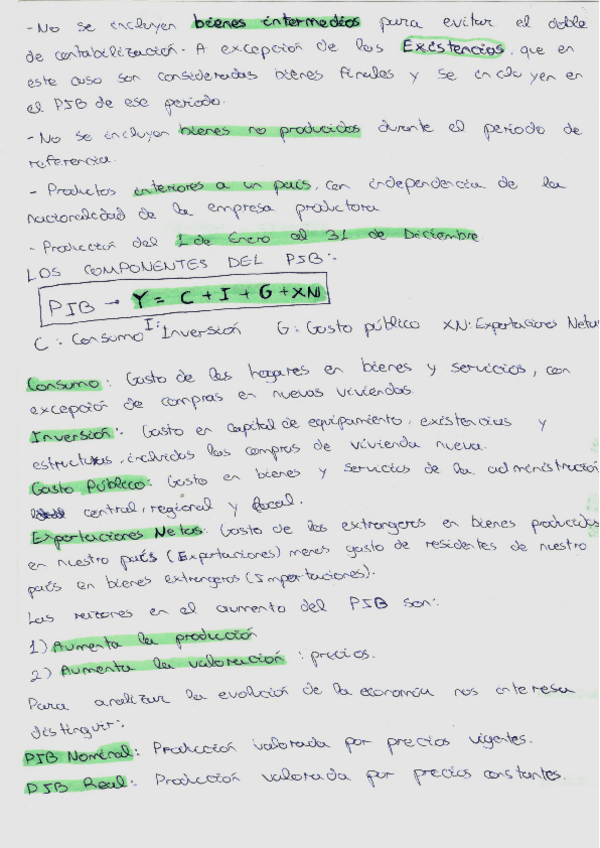 - No se incluyen bienes intermedios para evitar el doble
de contabilización. A excepción de las Existencias, que en
este caso son consideradas bienes finales y se incluyen en
el PIB de ese periodo.
- No se incluyen bienes no producidos durante el periodo de
referencia.
- Productos interiores a un país, con independencia de la
nacionalidad de la empresa productora
- Producción del 1 de Enero al 31 de Diciembre
LOS COMPONENTES DEL PIB:
PIB → Y = C + I + G + XN
C: Consumo I: Inversión G: Gasto público XN: Exportaciones Netas
Consumo: Gasto de los hogares en bienes y servicios, con
excepción de compras en nuevas viviendas.
Inversión: Gasto en capital de equipamiento, existencias y
estructuras, incluidas las compras de vivienda nueva.
Gasto Público: Gasto en bienes y servicios de la administración
central, regional y local.
Exportaciones Netas: Gasto de los extrangeros en bienes producidos
en nuestro país (Exportaciones) menos gasto de residentes de nuestro
país en bienes extrangeros (Importaciones).
Las razones en el aumento del PIB son:
1) Aumenta la producción
2) Aumenta la valoración: precios.
Para analizar la evolución de la economía nos interesa
distinguir:
PIB Nominal: Producción valorada por precios vigentes.
PIB Real: Producción valorada por precios constantes.